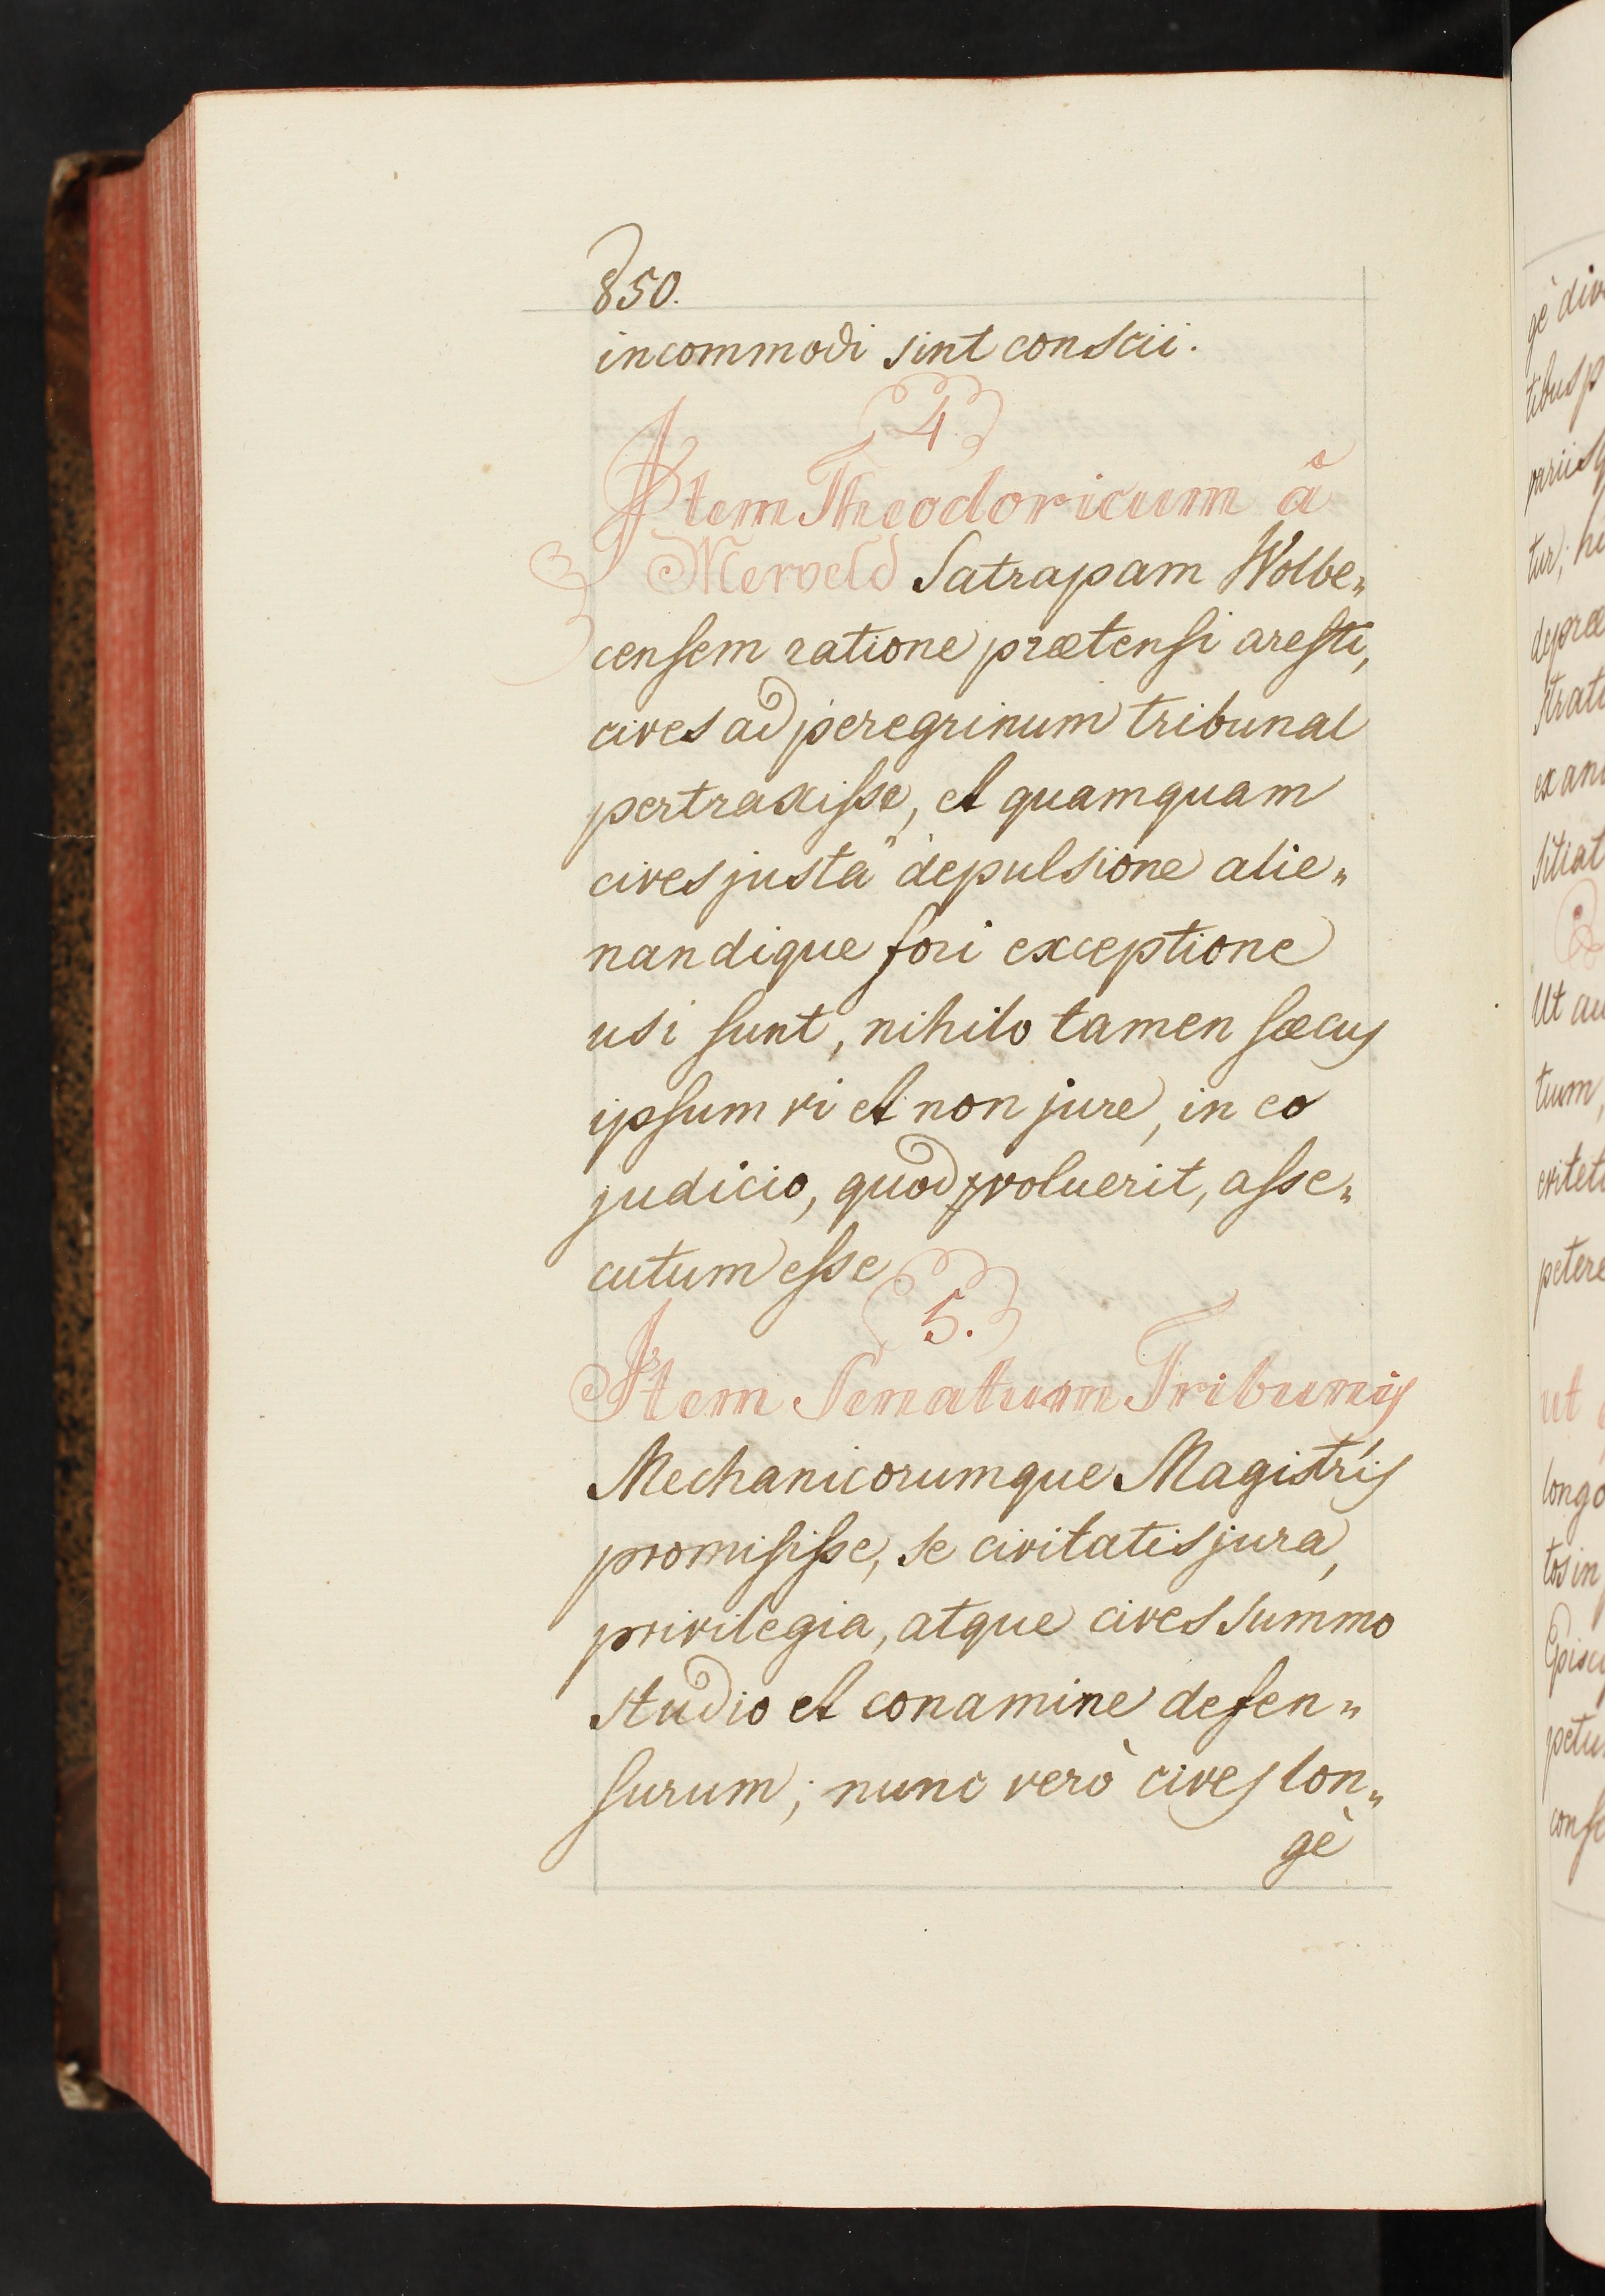 850.
incommodi sint conscii.
4.
Item Theodoricum â
Merveld Satrapam Wolbe„
censem ratione prætensi aresti,
cives ad peregrinum tribunal
pertraxisse, et quamquam
cives justâ depulsione alie„
nandique fori exceptione
usi sunt, nihilo tamen sæcus
ipsum vi et non jure, in eo
judicio, quod voluerit, asse„
cutum esse
5.
Item Senatum Tribunis
Mechanicorumque Magistris
promisisse, se civitatis jura,
privilegia, atque cives summo
studio et conamine defen„
surum; nunc verò cives lon„
gè
gè div
tibus p
variisq
tur; hi
depræ
strati
exam
sitiat
Ut au
tum,
evitet
petere
ut
longo
tos in
Episc
petu
conse